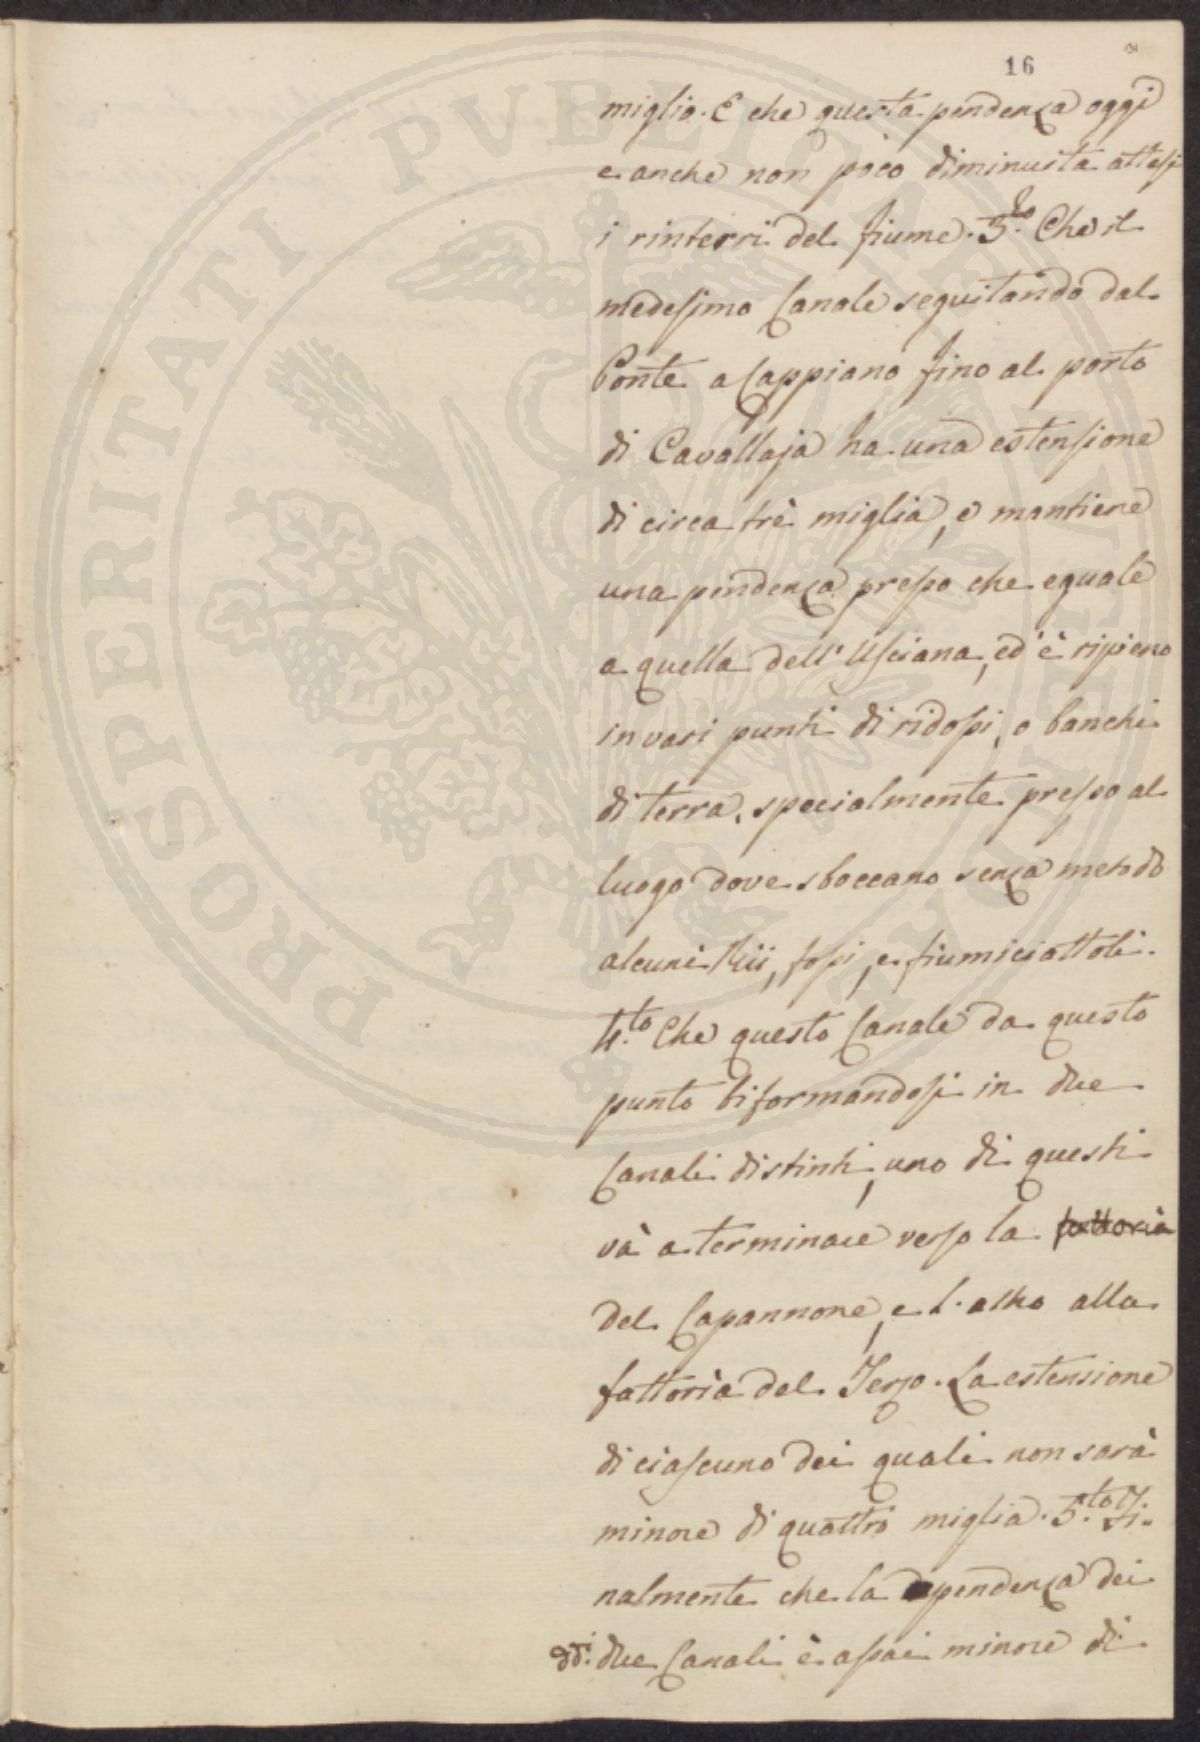 16
miglio. E che questa pendenza oggi
e anche non poco diminuita attesi
i rinterri del fiume. 3.zo Che il
medesimo Canale seguitando dal
Ponte a Cappiano fino al porto
di Cavallaja ha una estensione
di circa trè miglia, e mantiene
una pendenza presso che eguale
a quella dell'Usciana, ed è ripieno
in vari punti di ridossi, o banchi
di terra, specialmente presso al
luogo dove sboccano senza metodo
alcuni Rii, fossi, e fiumiciattoli.
4.to Che questo Canale da questo
punto biformandosi in due
Canali distinti, uno di questi
và a terminare verso la fattoria
del Capannone, e l'altro alla
fattorìa del Terzo. La estensione
di ciascuno dei quali non sarà
minore di quattro miglia. 5.to Fi-
nalmente che la pendenza dei
dd.i due Canali è assai minore di
PROSPERITATI PVBLICAE AVGENDAE